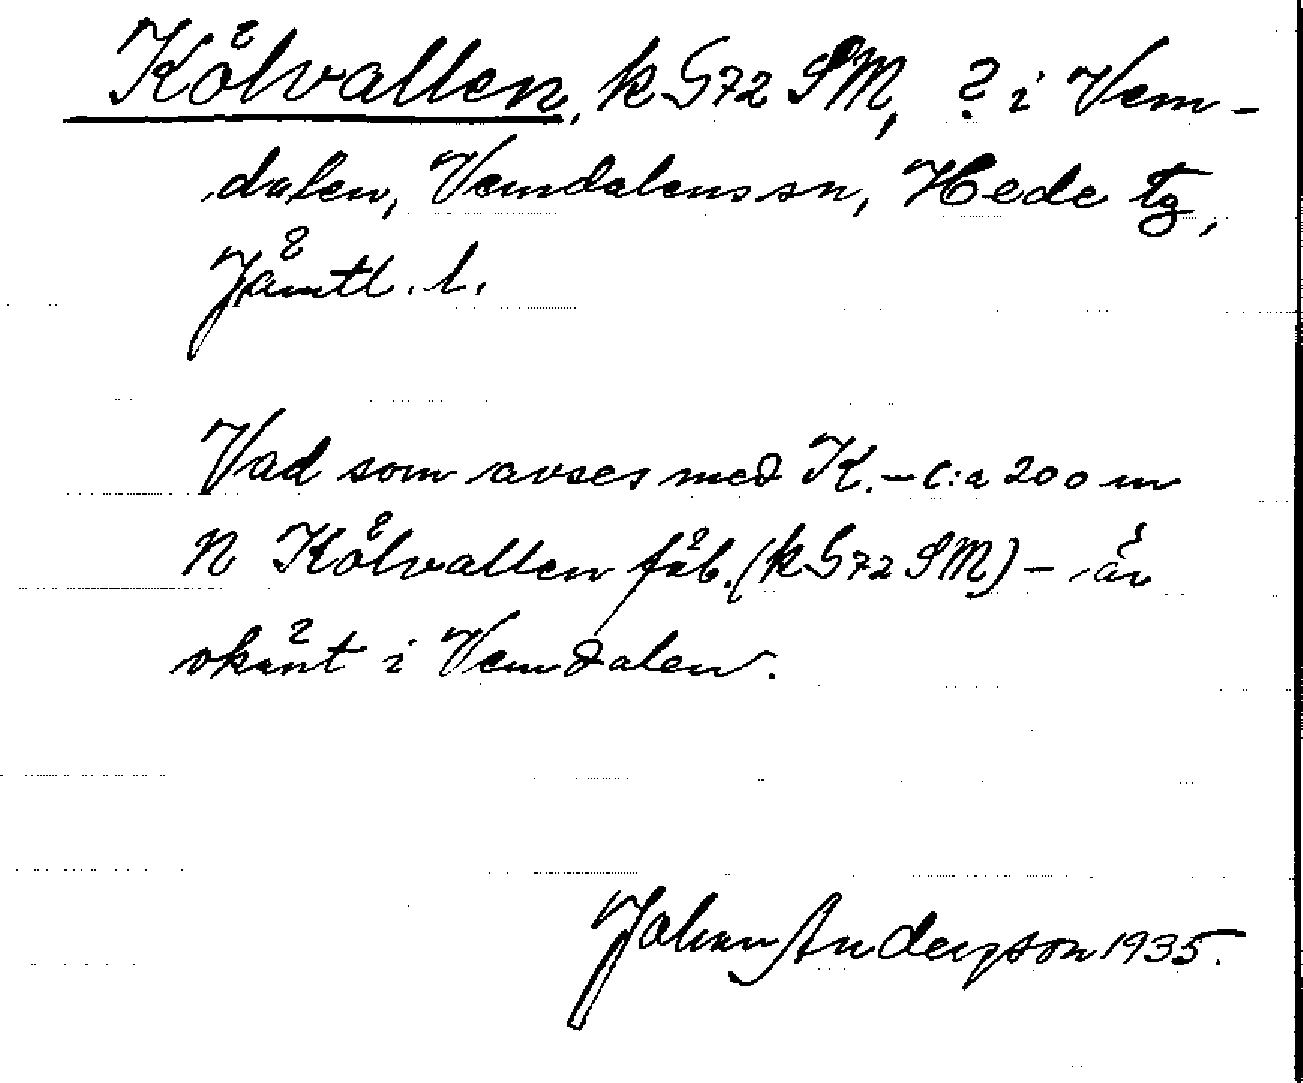 Kölvallen, k G72 SM, ? i Vem-
dalen, Vemdalens sn, Hede tg,
Jämtl. l.
Vad som avses med K. - c:a 200 m
N Kölvallen fäb. (k G72 SM) - är
okänt i Vemdalen.
Johan Anderson 1935.